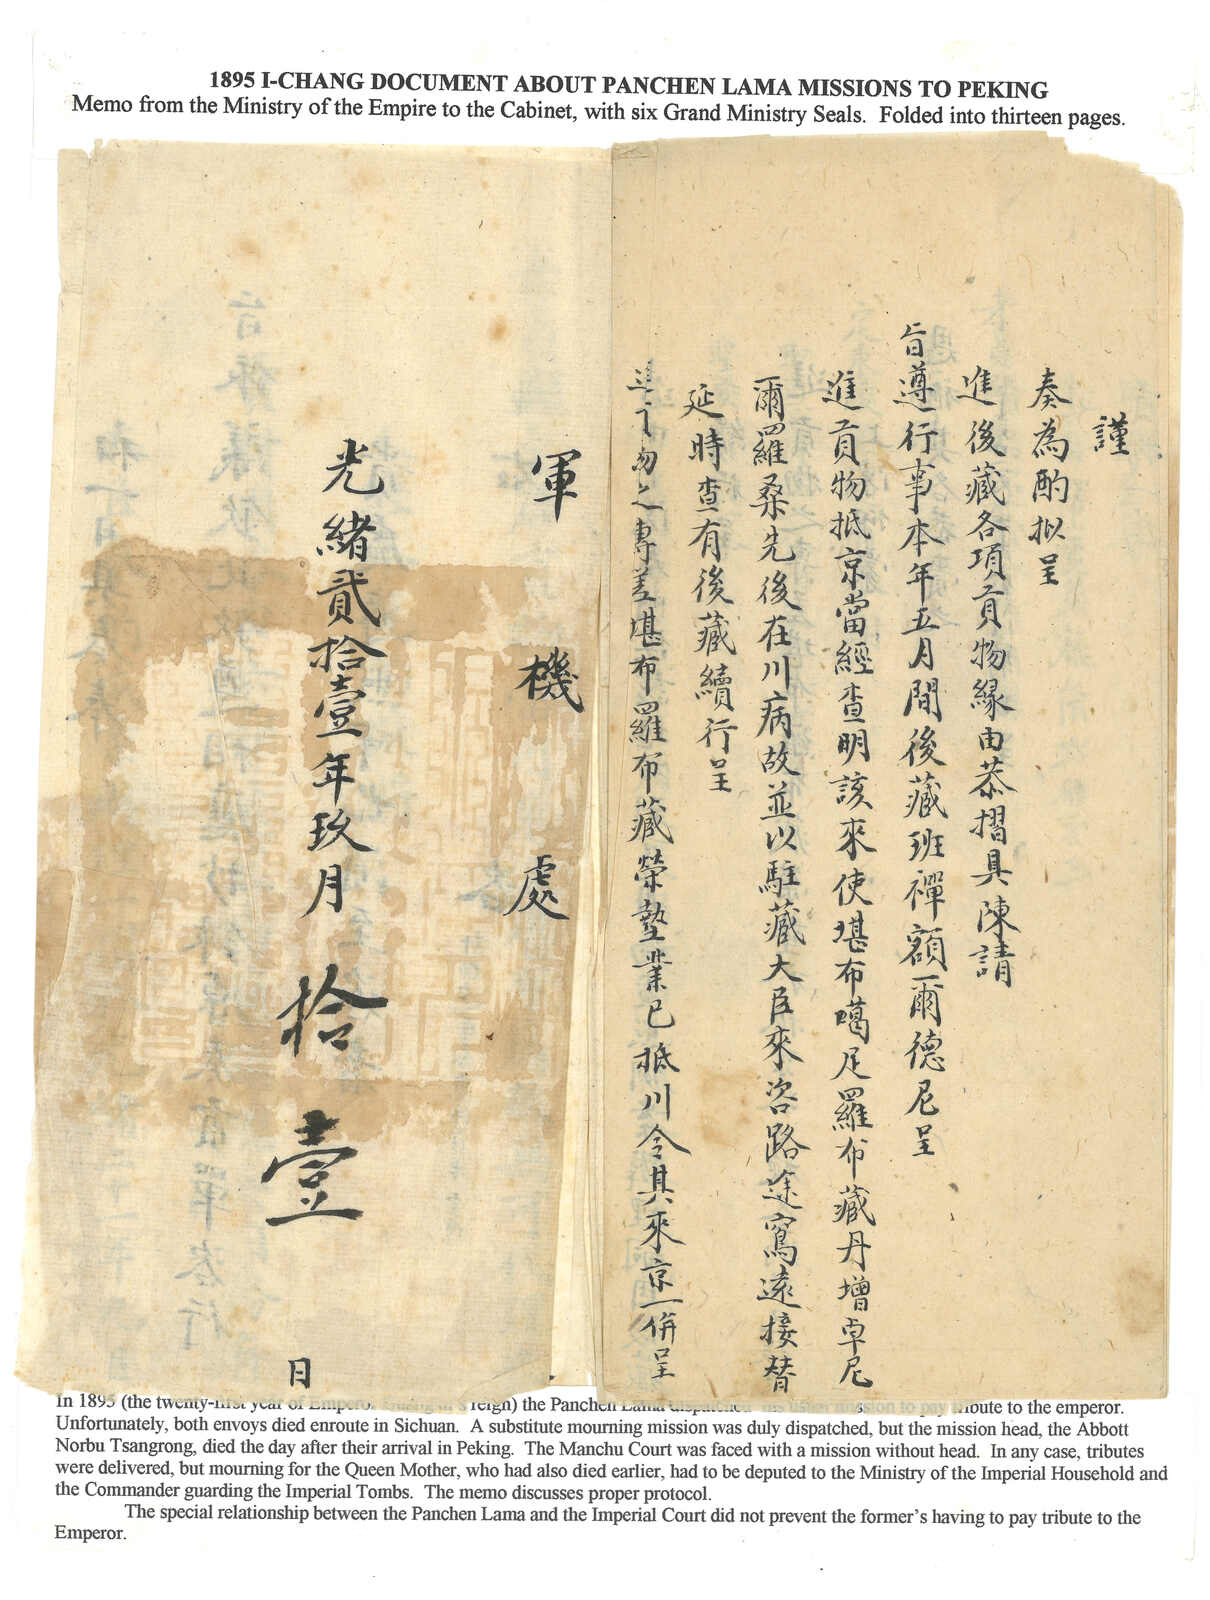 1895 I-CHANG DOCUMENT ABOUT PANCHEN LAMA MISSIONS TO PEKING
Memo from the Ministry of the Empire to the Cabinet, with six Grand Ministry Seals. Folded into thirteen pages.
謹
奏為酌拟呈
進後藏各項貢物緣由恭摺具陳請
旨遵行事本年五月間後藏班禪額爾德尼呈
進貢物抵京當經查明該來使堪布噶足羅布藏丹增卓尼
爾羅桑先後在川病故並以駐藏大臣來咨路途寫遠接替
延時查有後藏續行呈
之專差堪布羅布藏榮墊業已抵川令其來京一併呈
軍機處
光緒貳拾壹年玖月拾壹
日
In 1895 (the twenty-first year of reign) the Panchen Lama dispatched his usual mission to pay tribute to the emperor.
Unfortunately, both envoys died enroute in Sichuan. A substitute mourning mission was duly dispatched, but the mission head, the Abbott
Norbu Tsangrong, died the day after their arrival in Peking. The Manchu Court was faced with a mission without head. In any case, tributes
were delivered, but mourning for the Queen Mother, who had also died earlier, had to be deputed to the Ministry of the Imperial Household and
the Commander guarding the Imperial Tombs. The memo discusses proper protocol.
The special relationship between the Panchen Lama and the Imperial Court did not prevent the former's having to pay tribute to the
Emperor.